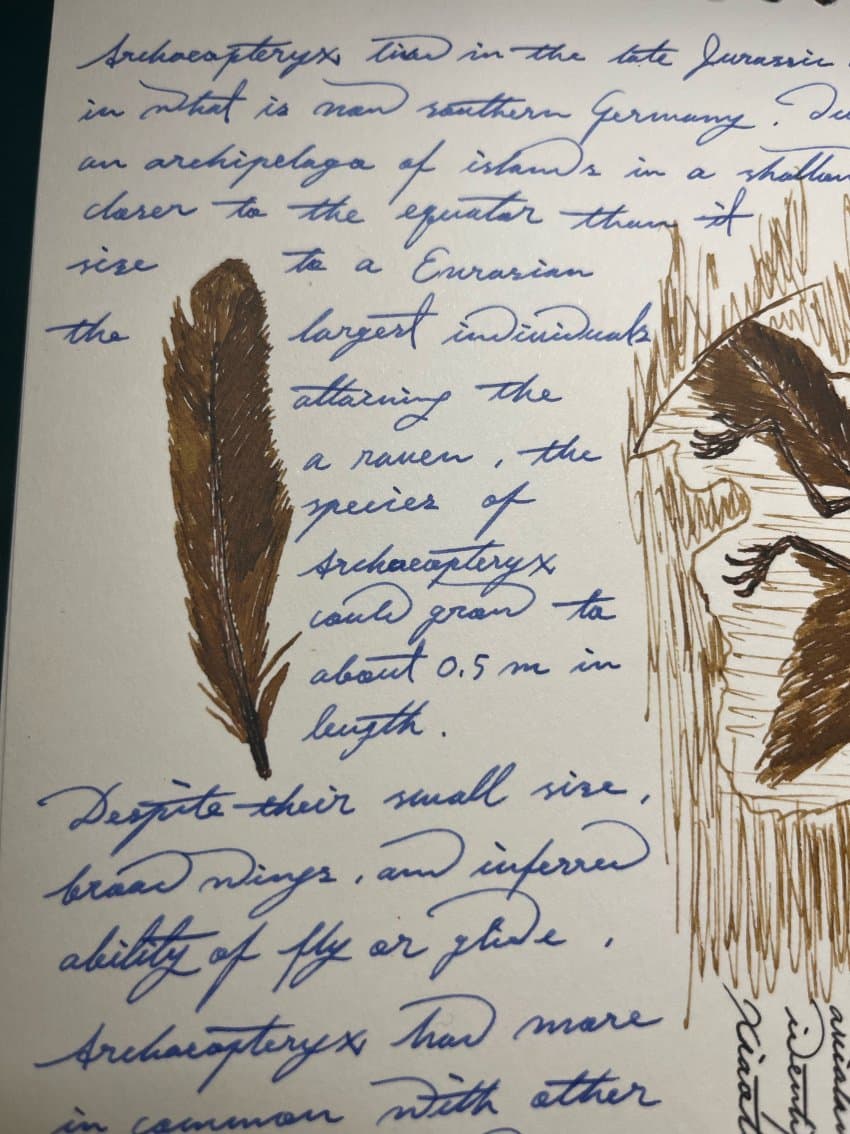 Archaeopteryx lived in the late Jurassic
in what is now southern Germany.
an archipelago of islands in a shallow
closer to the equator than it
size to a Eurasian
the largest individuals
attaining the
a raven, the
species of
Archaeopteryx
could grow to
about 0.5 m in
length.
Despite their small size,
broad wings, and inferred
ability of fly or glide,
Archaeopteryx had more
in common with other